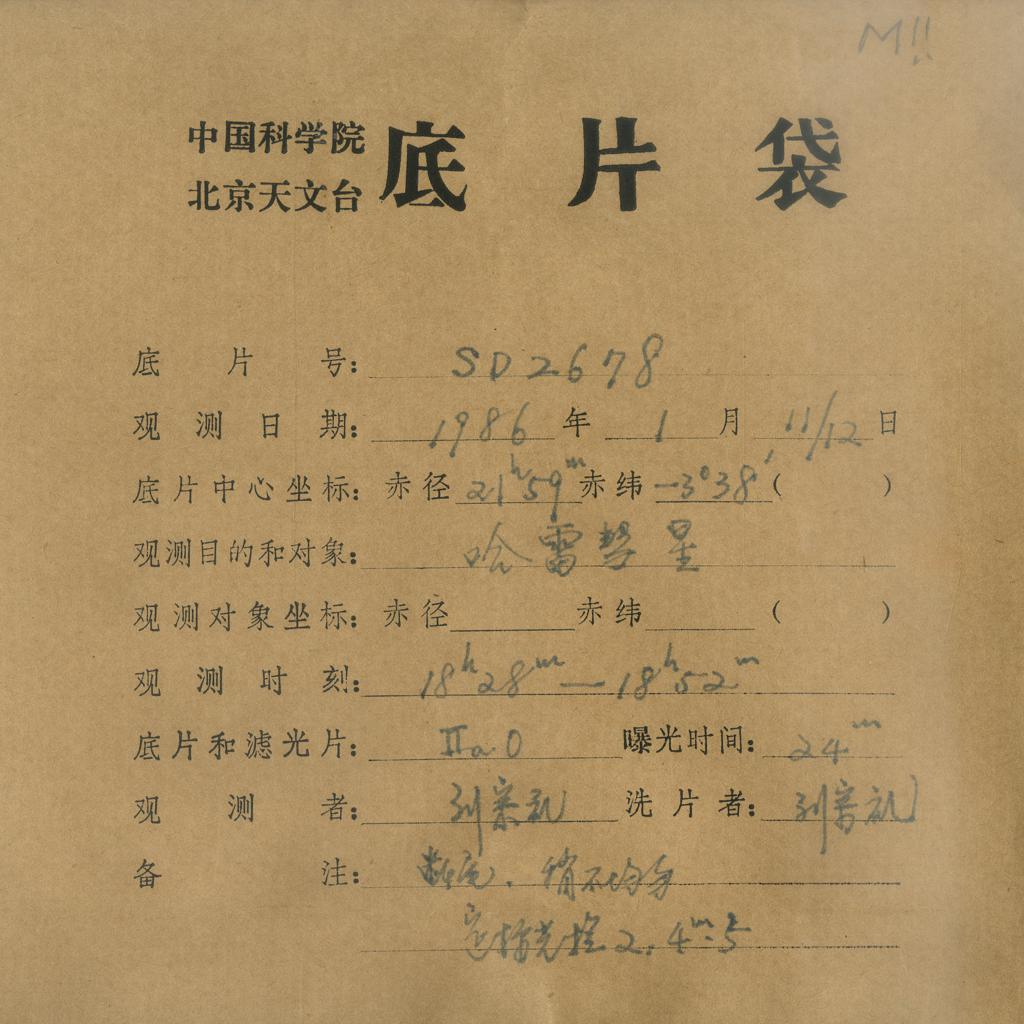 M!!
中国科学院
北京天文台 底片袋
底片号: SD2678
观测日期: 1986年1月11/12日
底片中心坐标: 赤径 21ʰ59ᵐ 赤纬 -3°38′ ( )
观测目的和对象: 哈雷彗星
观测对象坐标: 赤径 赤纬 ( )
观测时刻: 18ʰ28ᵐ—18ʰ52ᵐ
底片和滤光片: IIa.O 曝光时间: 24ᵐ
观测者: 刘宗礼 洗片者: 刘宗礼
备注: 稍不均匀
2.4ᵐ.5